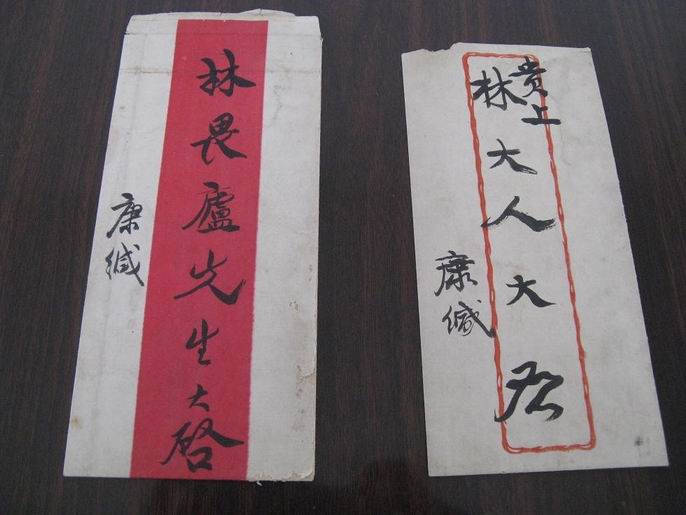 林畏廬先生大啓
康緘
賁上
林大人大啟
康緘